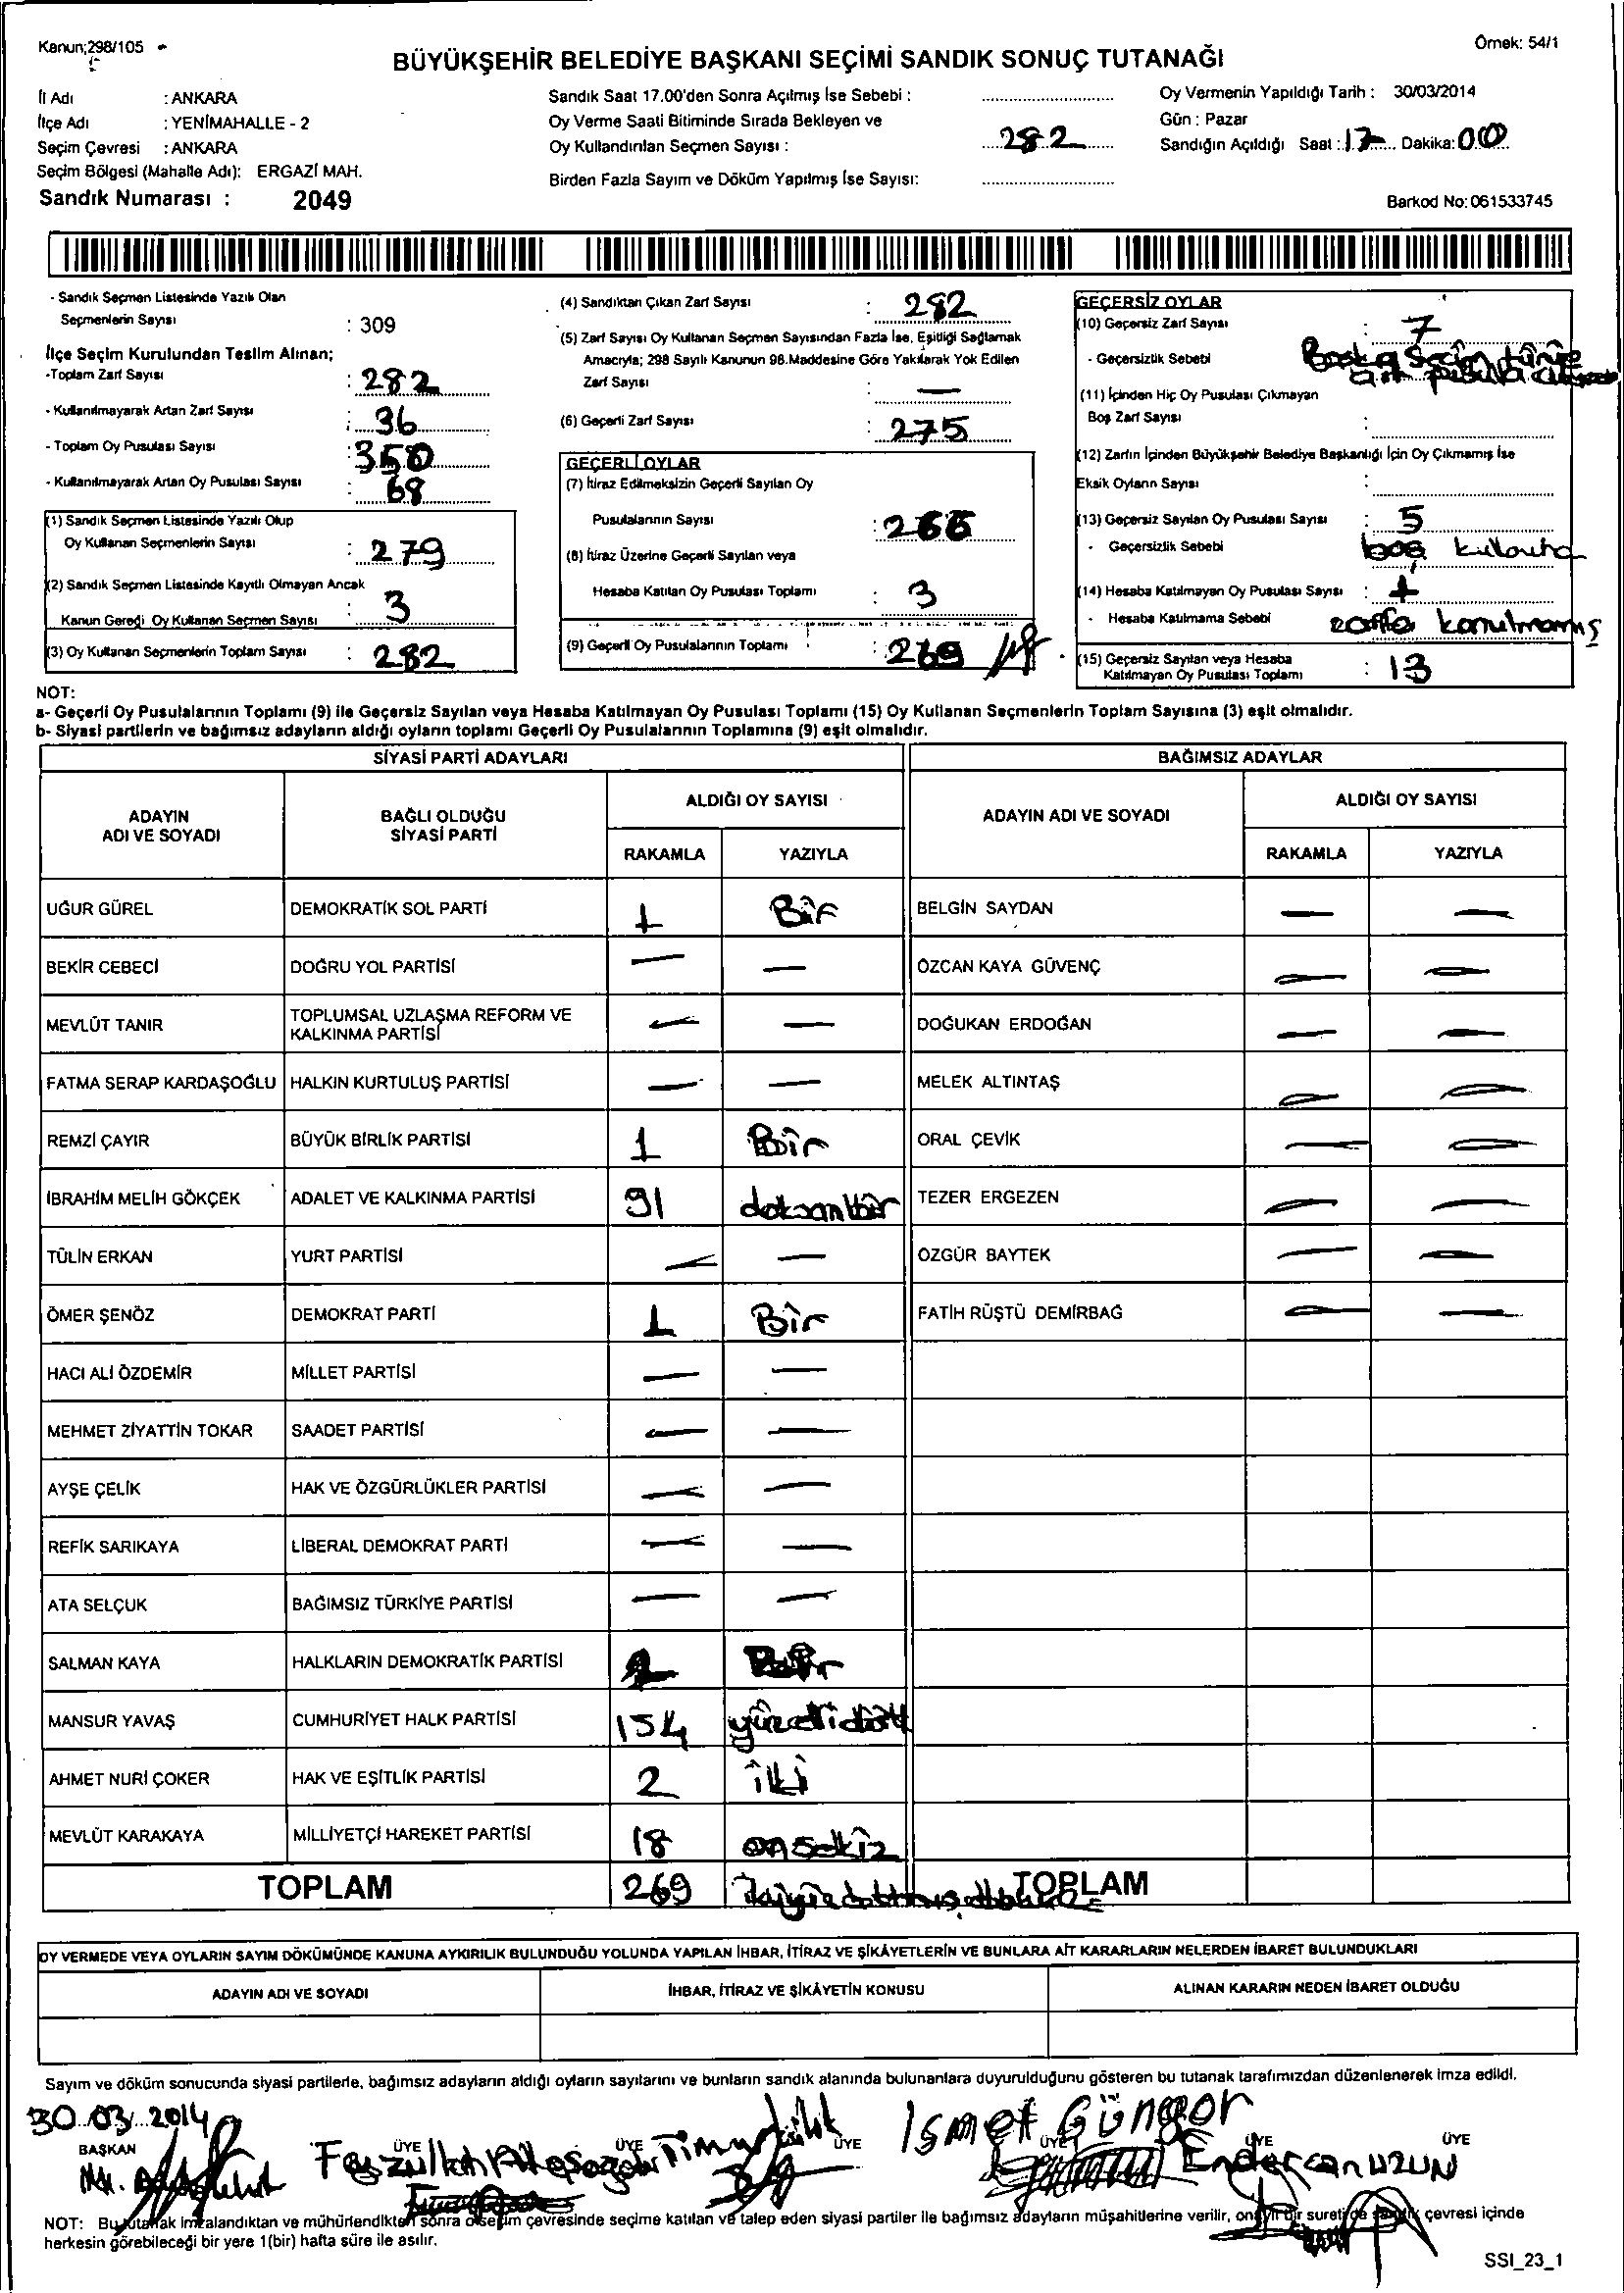 Kanun;298/105
Örnek: 54/1
BÜYÜKŞEHİR BELEDİYE BAŞKANI SEÇİMİ SANDIK SONUÇ TUTANAĞI
İl Adı : ANKARA
İlçe Adı : YENİMAHALLE - 2
Seçim Çevresi : ANKARA
Seçim Bölgesi (Mahalle Adı): ERGAZİ MAH.
Sandık Numarası : 2049
Sandık Saat 17.00'den Sonra Açılmış İse Sebebi :
Oy Verme Saati Bitiminde Sırada Bekleyen ve
Oy Kullandırılan Seçmen Sayısı : 282
Birden Fazla Sayım ve Döküm Yapılmış İse Sayısı:
Oy Vermenin Yapıldığı Tarih : 30/03/2014
Gün : Pazar
Sandığın Açıldığı Saat : 17 Dakika: 00
Barkod No: 061533745
- Sandık Seçmen Listesinde Yazılı Olan
Seçmenlerin Sayısı : 309
İlçe Seçim Kurulundan Teslim Alınan;
-Toplam Zarf Sayısı : 282
- Kullanılmayarak Artan Zarf Sayısı : 36
- Toplam Oy Pusulası Sayısı : 350
- Kullanılmayarak Artan Oy Pusulası Sayısı : 68
(1) Sandık Seçmen Listesinde Yazılı Olup
Oy Kullanan Seçmenlerin Sayısı : 279
(2) Sandık Seçmen Listesinde Kayıtlı Olmayan Ancak
Kanun Gereği Oy Kullanan Seçmen Sayısı : 3
(3) Oy Kullanan Seçmenlerin Toplam Sayısı : 282
(4) Sandıktan Çıkan Zarf Sayısı : 282
(5) Zarf Sayısı Oy Kullanan Seçmen Sayısından Fazla İse, Eşitliği Sağlamak
Amacıyla; 298 Sayılı Kanunun 98.Maddesine Göre Yakılarak Yok Edilen
Zarf Sayısı : —
(6) Geçerli Zarf Sayısı : 275
GEÇERLİ OYLAR
(7) İtiraz Edilmeksizin Geçerli Sayılan Oy
Pusulalarının Sayısı : 266
(8) İtiraz Üzerine Geçerli Sayılan veya
Hesaba Katılan Oy Pusulası Toplamı : 3
(9) Geçerli Oy Pusulalarının Toplamı : 269
GEÇERSİZ OYLAR
(10) Geçersiz Zarf Sayısı : 7
- Geçersizlik Sebebi Başka Seçim türüne
ait pusula
(11) İçinden Hiç Oy Pusulası Çıkmayan
Boş Zarf Sayısı :
(12) Zarfın İçinden Büyükşehir Belediye Başkanlığı İçin Oy Çıkmamış İse
Eksik Oyların Sayısı :
(13) Geçersiz Sayılan Oy Pusulası Sayısı : 5
- Geçersizlik Sebebi boş
(14) Hesaba Katılmayan Oy Pusulası Sayısı : 1
- Hesaba Katılmama Sebebi zarfa konulmamış
(15) Geçersiz Sayılan veya Hesaba
Katılmayan Oy Pusulası Toplamı : 13
NOT:
a- Geçerli Oy Pusulalarının Toplamı (9) ile Geçersiz Sayılan veya Hesaba Katılmayan Oy Pusulası Toplamı (15) Oy Kullanan Seçmenlerin Toplam Sayısına (3) eşit olmalıdır.
b- Siyasi partilerin ve bağımsız adayların aldığı oyların toplamı Geçerli Oy Pusulalarının Toplamına (9) eşit olmalıdır.
SİYASİ PARTİ ADAYLARI BAĞIMSIZ ADAYLAR
ADAYIN ADI VE SOYADI BAĞLI OLDUĞU SİYASİ PARTİ ALDIĞI OY SAYISI ADAYIN ADI VE SOYADI ALDIĞI OY SAYISI
RAKAMLA YAZIYLA RAKAMLA YAZIYLA
UĞUR GÜREL DEMOKRATİK SOL PARTİ 1 Bir BELGİN SAYDAN — —
BEKİR CEBECİ DOĞRU YOL PARTİSİ — — ÖZCAN KAYA GÜVENÇ — —
MEVLÜT TANIR TOPLUMSAL UZLAŞMA REFORM VE KALKINMA PARTİSİ — — DOĞUKAN ERDOĞAN — —
FATMA SERAP KARDAŞOĞLU HALKIN KURTULUŞ PARTİSİ — — MELEK ALTINTAŞ — —
REMZİ ÇAYIR BÜYÜK BİRLİK PARTİSİ 1 Bir ORAL ÇEVİK — —
İBRAHİM MELİH GÖKÇEK ADALET VE KALKINMA PARTİSİ 91 doksanbir TEZER ERGEZEN — —
TÜLİN ERKAN YURT PARTİSİ — — ÖZGÜR BAYTEK — —
ÖMER ŞENÖZ DEMOKRAT PARTİ 1 Bir FATİH RÜŞTÜ DEMİRBAĞ — —
HACI ALİ ÖZDEMİR MİLLET PARTİSİ — —
MEHMET ZİYATTİN TOKAR SAADET PARTİSİ — —
AYŞE ÇELİK HAK VE ÖZGÜRLÜKLER PARTİSİ — —
REFİK SARIKAYA LİBERAL DEMOKRAT PARTİ — —
ATA SELÇUK BAĞIMSIZ TÜRKİYE PARTİSİ — —
SALMAN KAYA HALKLARIN DEMOKRATİK PARTİSİ 1 Bir
MANSUR YAVAŞ CUMHURİYET HALK PARTİSİ 154 yüzellidört
AHMET NURİ ÇOKER HAK VE EŞİTLİK PARTİSİ 2 iki
MEVLÜT KARAKAYA MİLLİYETÇİ HAREKET PARTİSİ 18 onsekiz
TOPLAM 269 ikiyüzaltmışdokuz TOPLAM
OY VERMEDE VEYA OYLARIN SAYIM DÖKÜMÜNDE KANUNA AYKIRILIK BULUNDUĞU YOLUNDA YAPILAN İHBAR, İTİRAZ VE ŞİKÂYETLERİN VE BUNLARA AİT KARARLARIN NELERDEN İBARET BULUNDUKLARI
ADAYIN ADI VE SOYADI İHBAR, İTİRAZ VE ŞİKÂYETİN KONUSU ALINAN KARARIN NEDEN İBARET OLDUĞU
Sayım ve döküm sonucunda siyasi partilerle, bağımsız adayların aldığı oyların sayılarını ve bunların sandık alanında bulunanlara duyurulduğunu gösteren bu tutanak tarafımızdan düzenlenerek imza edildi.
30.03.2014
BAŞKAN ÜYE ÜYE ÜYE ÜYE ÜYE ÜYE
İsmet Güngör
Endercan UZUN
NOT: Bu tutanak imzalandıktan ve mühürlendikten sonra o seçim çevresinde seçime katılan ve talep eden siyasi partiler ile bağımsız adayların müşahitlerine verilir, onaylı bir sureti de sandık çevresi içinde
herkesin görebileceği bir yere 1(bir) hafta süre ile asılır.
SSI_23_1